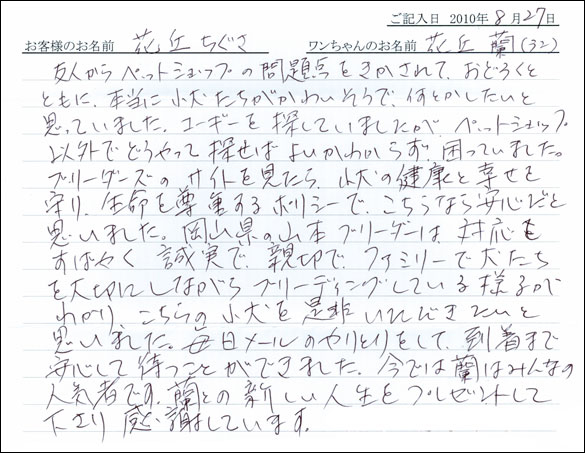 ご記入日 2010年 8月 27日
お客様のお名前 花丘 ちぐさ ワンちゃんのお名前 花丘 蘭(ラン)
友人からペットショップの問題点をきかされて、おどろくと
ともに、本当に小犬たちがかわいそうで、何とかしたいと
思っていました。コーギーを探していましたが、ペットショップ
以外でどうやって探せばよいかわからず、困っていました。
ブリーダーズのサイトを見たら、小犬の健康と幸せを
守り、生命を尊重するポリシーで、こちらなら安心だと
思いました。岡山県の山本ブリーダーは、対応も
すばやく 誠実で、親切で、ファミリーで犬たち
を大切にしながらブリーディングしている様子が
わかり、こちらの小犬を是非いただきたいと
思いました。毎日メールのやりとりをして、到着まで
安心して待つことができました。今では蘭はみんなの
人気者です。蘭との新しい人生をプレゼントして
下さり 感謝しています。